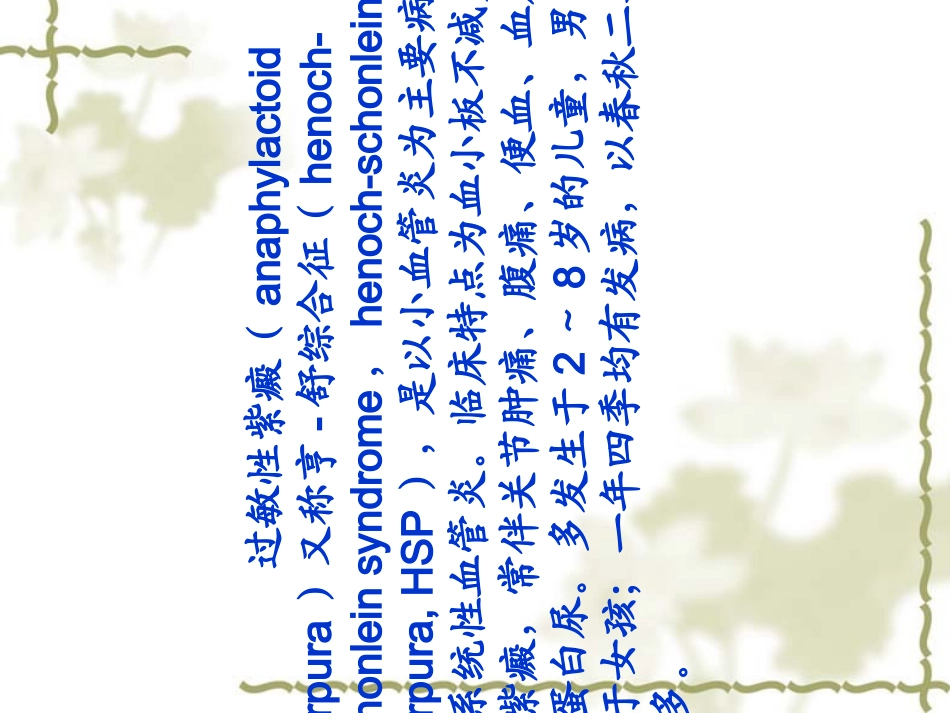 过敏性紫癜（ anaphylactoid
rpura ）又称亨 - 舒综合征（ henoch-
honlein syndrome ， henoch-schonlein
rpura, HSP ），是以小血管炎为主要病
系统性血管炎。临床特点为血小板不减
紫癜，常伴关节肿痛、腹痛、便血、血
蛋白尿。 多发生于 2 ~ 8 岁的儿童，男
于女孩；一年四季均有发病，以春秋二
多。